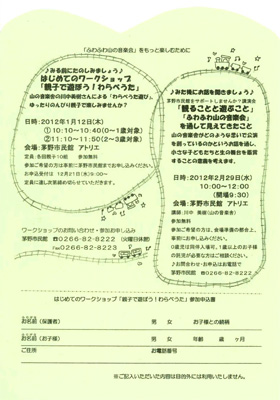 「ふわふわ山の音楽会」をもっと楽しむために
♪みる前にたのしみましょう♪
はじめてのワークショップ
「親子で遊ぼう！わらべうた」
山の音楽舎の川中美樹さんによる「わらべうた遊び」。
ゆったりのんびり親子で楽しみませんか？
日時：2012年1月12日(木)
① 10:10〜10:40(0〜1歳対象)
② 11:10〜11:50(2〜3歳対象)
会場：茅野市民館 アトリエ
定員：各回親子10組 参加無料
参加ご希望の方は事前に茅野市民館までお申し込みください。
お申込受付は 12月21日(水)9:00〜
定員に達し次第締め切らせていただきます。
ワークショップのお問い合わせ・参加お申し込み
茅野市民館 ℡0266-82-8222 (火曜日休館)
Fax0266-82-8223
♪みた後にお話を聞きましょう♪
茅野市民館をサポートしませんか？講演会
「観ることと遊ぶこと」
「ふわふわ山の音楽会」
を通して見えてきたこと
山の音楽舎がどのような思いで公演
を創っているのかというお話を通し、
小さな子どもたちと生の舞台を鑑賞
することの意義を考えます。
日時：2012年2月29日(水)
10:00〜12:00
(開場9:30)
会場：茅野市民館 アトリエ
参加無料
参加ご希望の方は、会場準備の都合上、
事前にお申し込みください。
はじめてのワークショップ「親子で遊ぼう！わらべうた」参加申込書
お名前（保護者） 男 女 お子様との続柄
お名前（お子様） 男 女 年齢 歳 ヶ月
ご住所 お電話番号
※ご記入いただいた内容は目的外には利用いたしません。